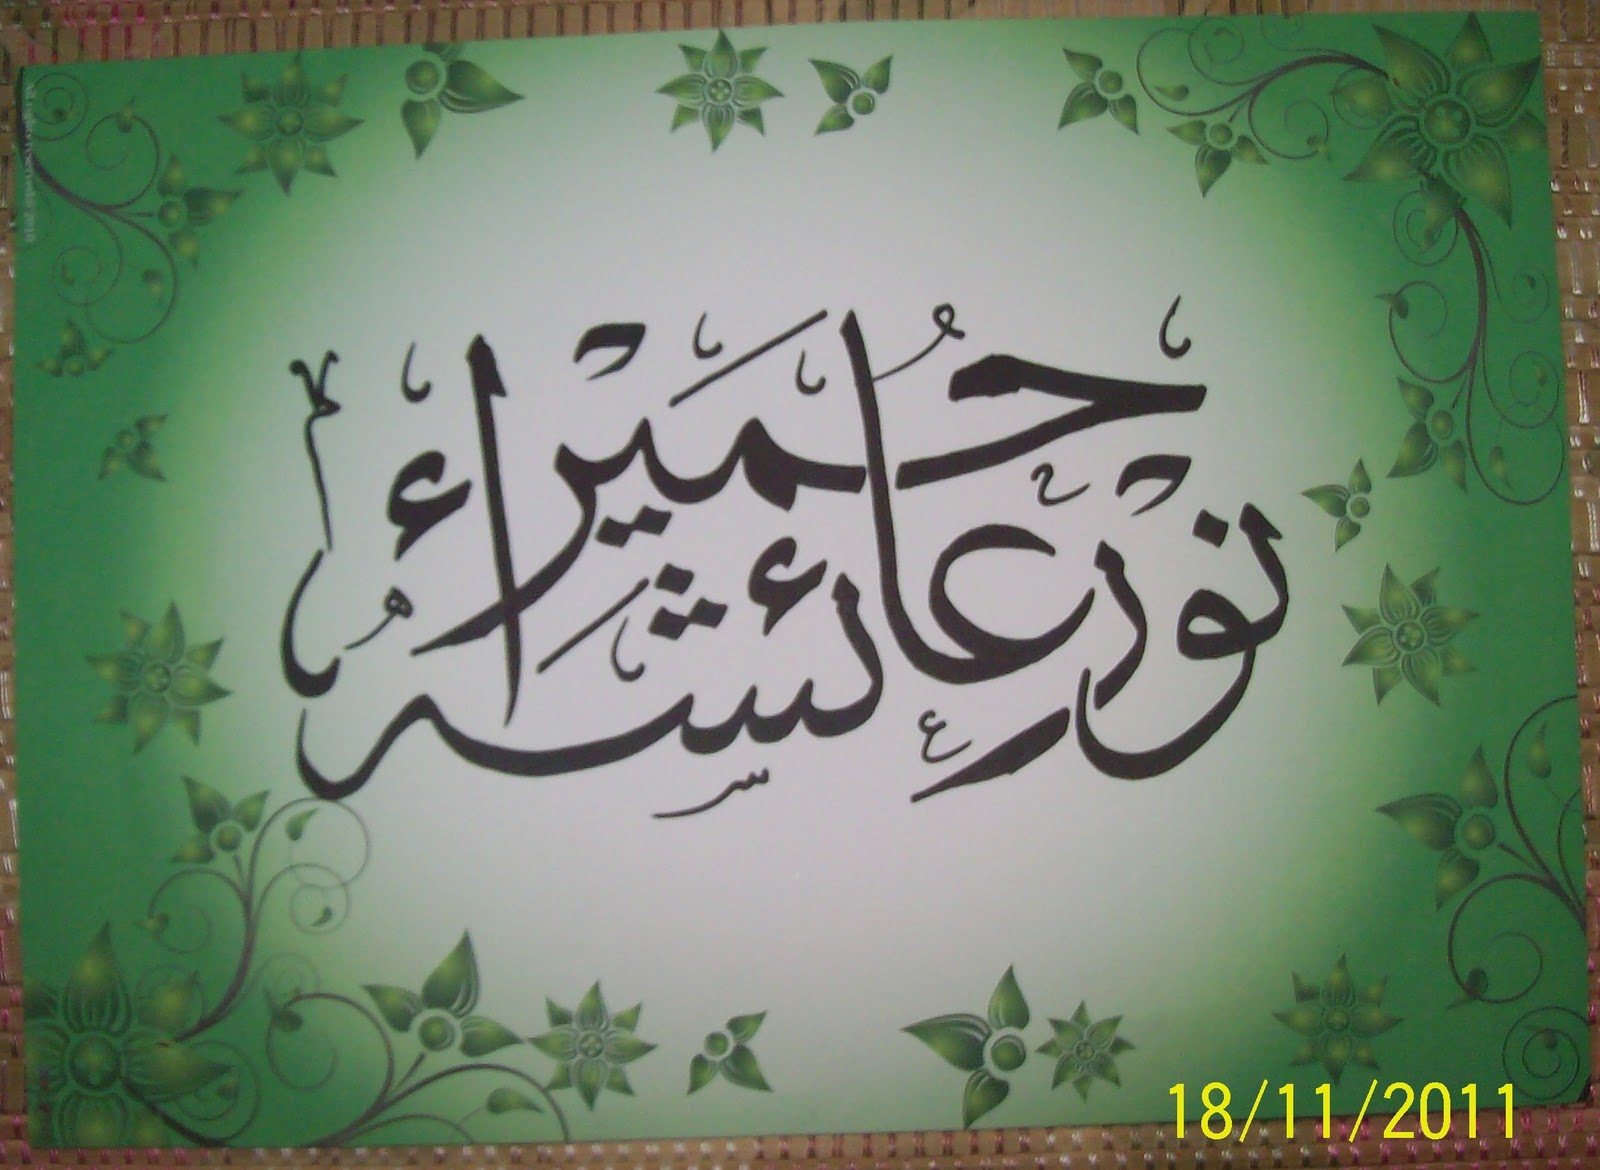 نوْر عائشَهُ
حُمَيْراء
18/11/2011